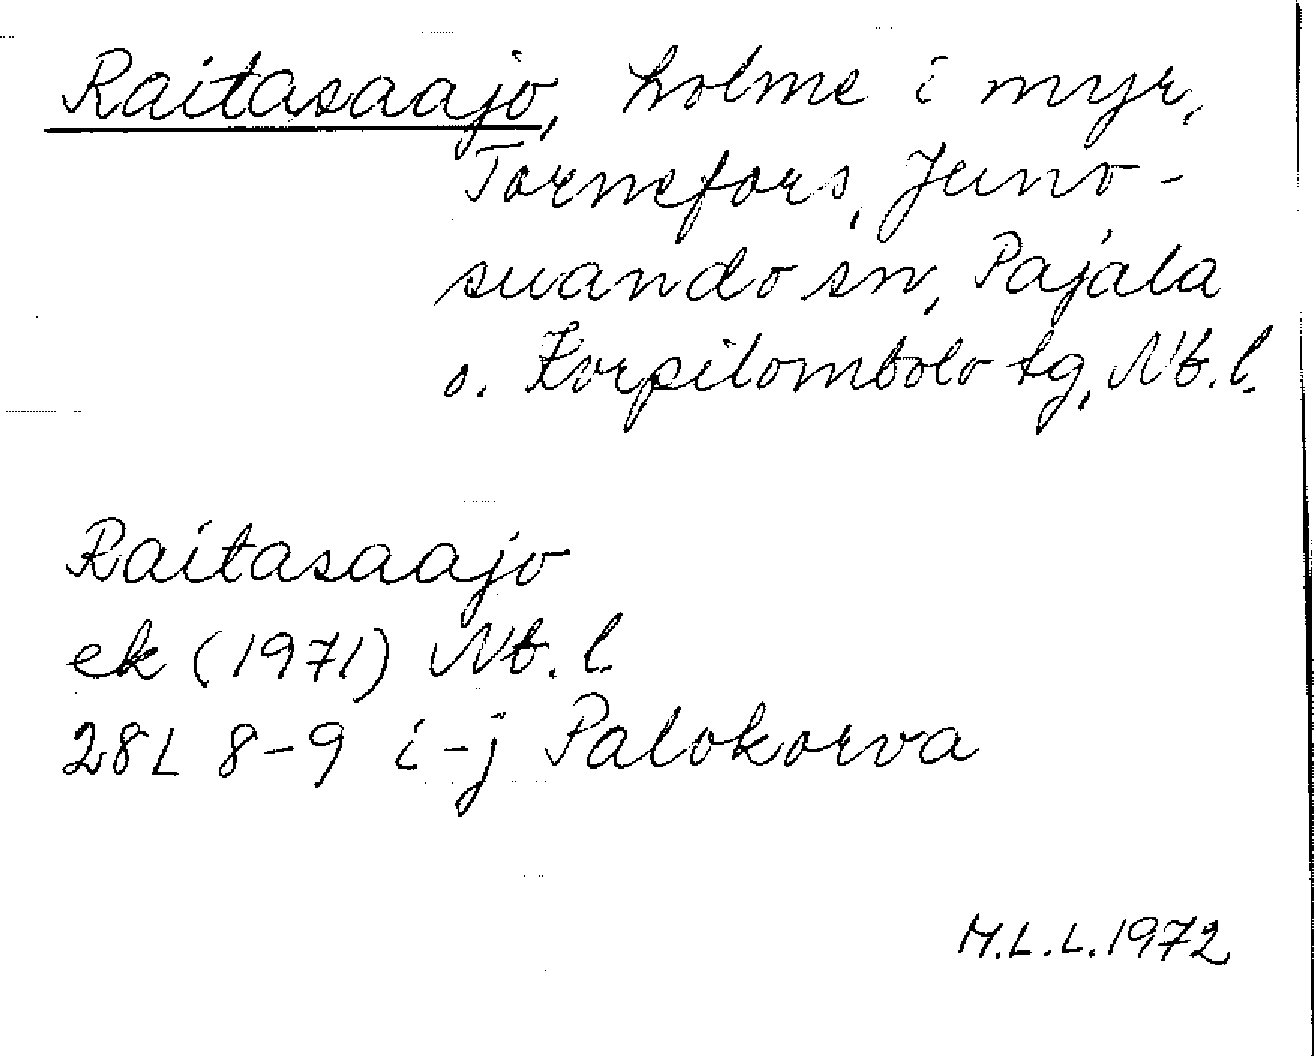 Raitasaajo, holme i myr,
Tornefors, Juno-
suando sn, Pajala
o. Korpilombolo tg, Nb. l.
Raitasaajo
ek (1971) Nb. l.
28L 8-9 i-j Palokorva
M.L.L. 1972